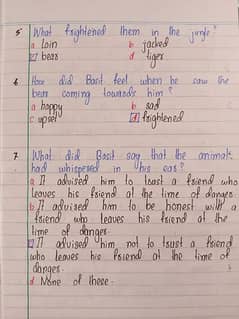 5 What frightened them in the jungle?
a loin b jacked
c bear d tiger
6 How did Basit feel when he saw the
bear coming towards him?
a happy b sad
c upset d frightened
7 What did Basit say that the animal
had whispered in his ear?
a It advised him to trust a friend who
leaves his friend at the time of danger.
b It advised him to be honest with a
friend who leaves his friend at the
time of danger
c It advised him not to trust a friend
who leaves his friend at the time of
danger.
d None of these.